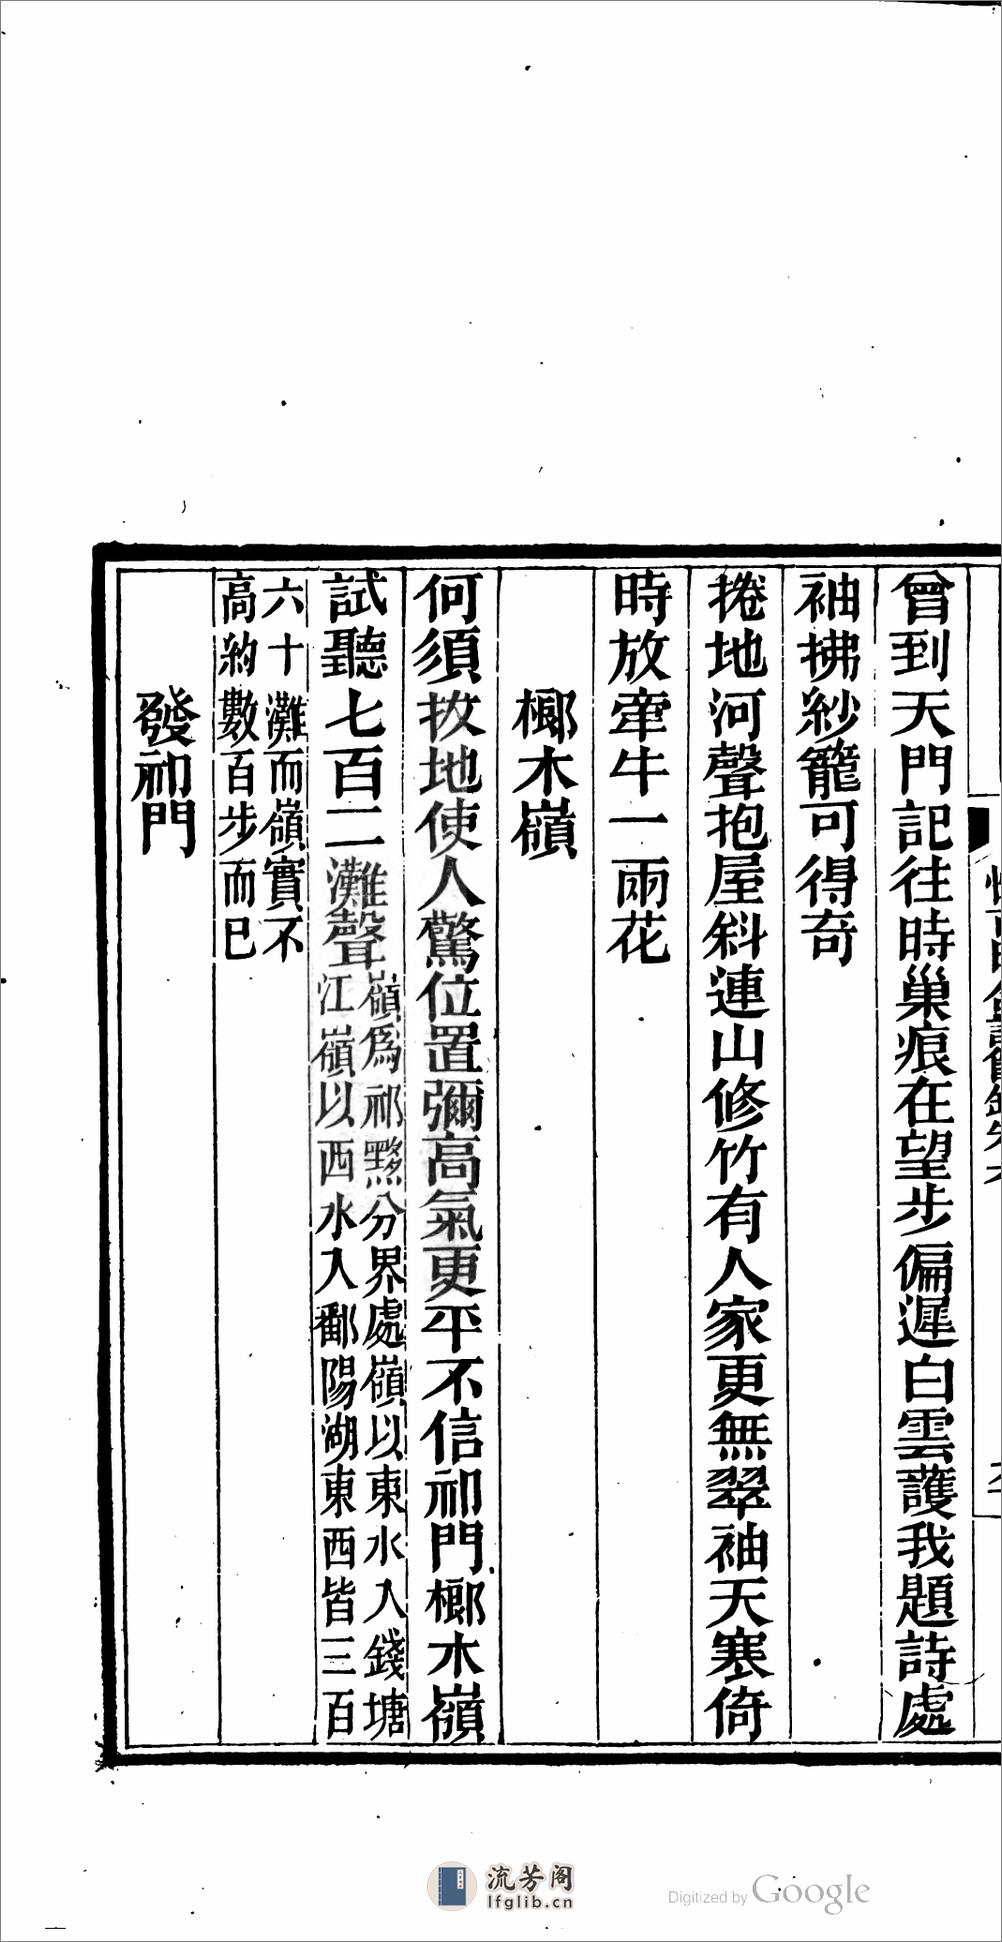 曾到天門記往時巢痕在望步偏遲白雲護我題詩處
袖拂紗籠可得奇
捲地河聲抱屋斜連山修竹有人家更無翠袖天寒倚
時放牽牛一兩花
榔木嶺
何須拔地使人驚位置彌高氣更平不信祁門榔木嶺
試聽七百二灘聲
嶺爲祁黟分界處嶺以東水入錢塘
江嶺以西水入鄱陽湖東西皆三百
六十灘而嶺實不
高約數百步而已
發祁門
流芳阁
lfglib.cn
Digitized by Google